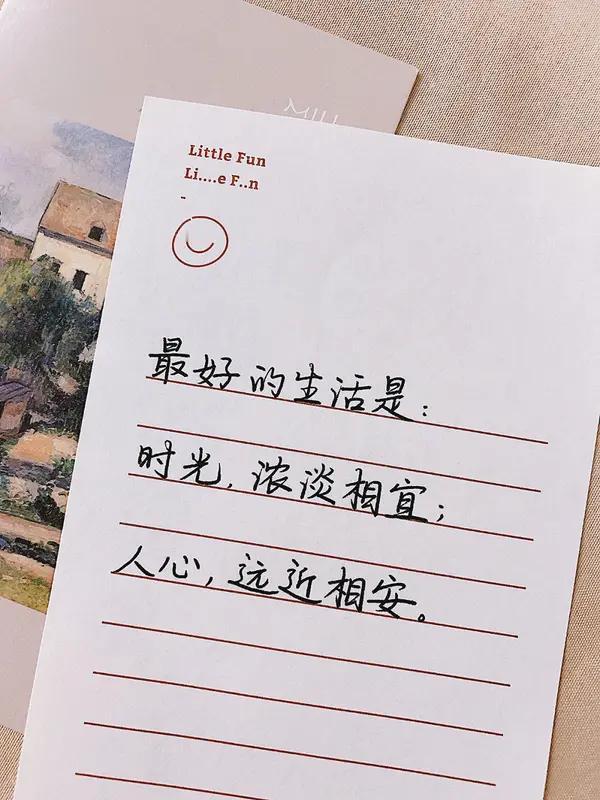 MIU
Little Fun
Li....e F..n
最好的生活是：
时光，浓淡相宜；
人心，远近相安。